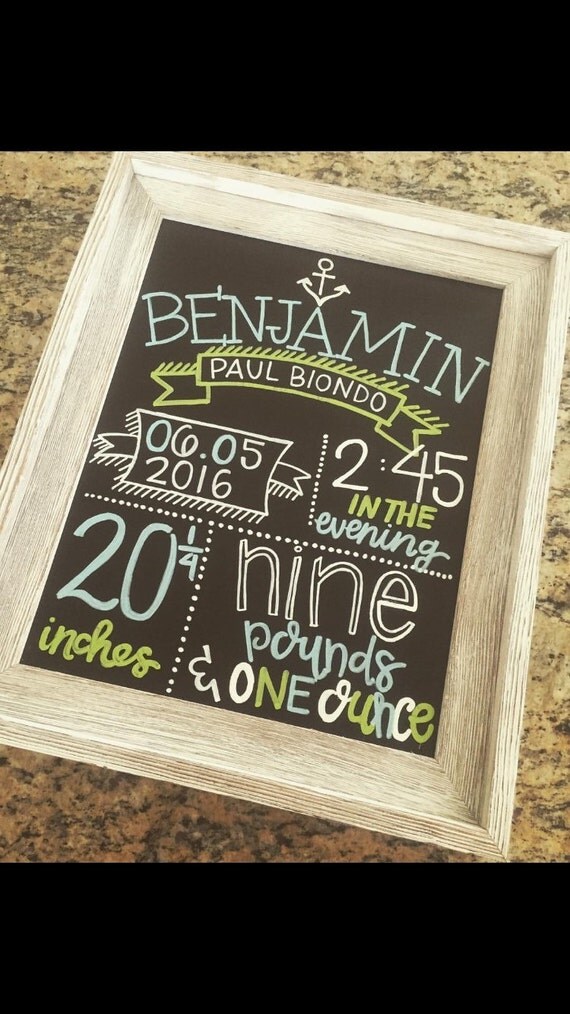 BENJAMIN
PAUL BIONDO
06.05
2016
2:45
IN THE
evening
20 1/4
inches
nine
pounds
& ONE ounce